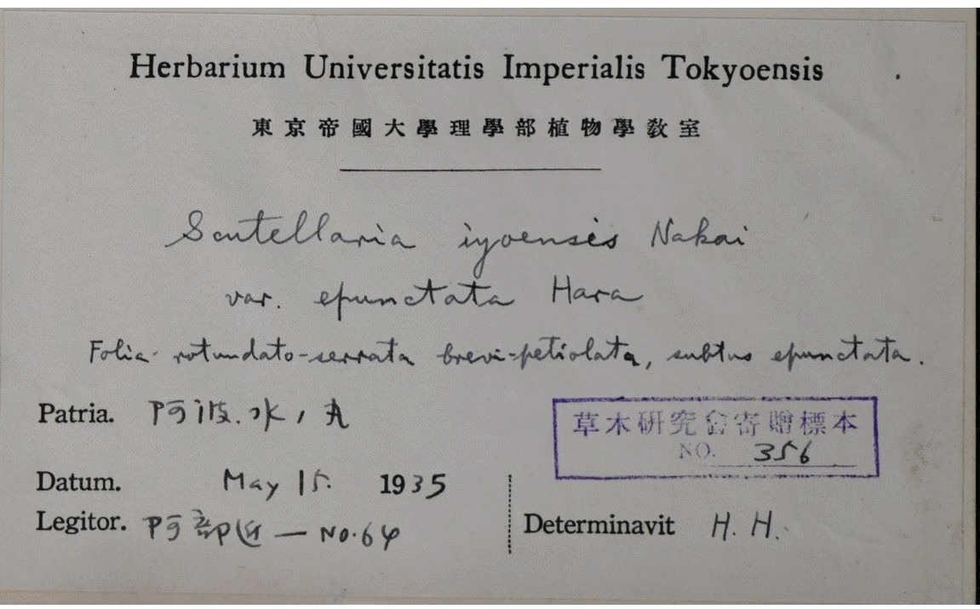 Herbarium Universitatis Imperialis Tokyoensis
東京帝國大學理學部植物學教室
Scutellaria iyoensis Nakai
var. epunctata Hara
Folia rotundato-serrata brevi-petiolata, subtus epunctata.
Patria. 阿波.水ノ丸
草木研究會寄贈標本
NO. 356
Datum. May 15. 1935
Legitor. 阿部近一 No.64
Determinavit H. H.